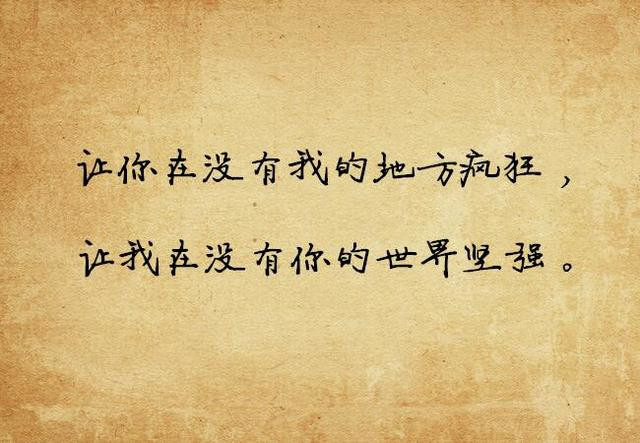 让你在没有我的地方疯狂，
让我在没有你的世界坚强。